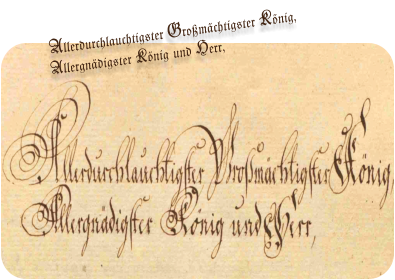 Allerdurchlauchtigster Großmächtigster König,
Allergnädigster König und Herr,
Allerdurchlauchtigster Großmächtigster König,
Allergnädigster König und Herr,